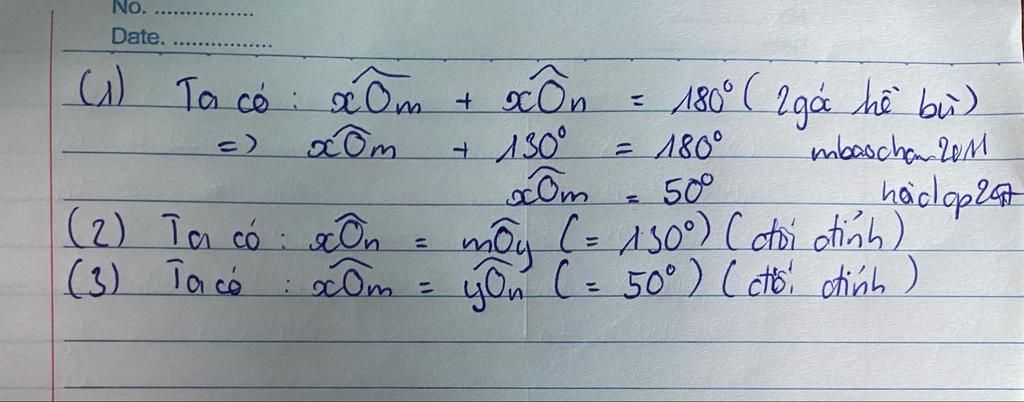 No. ................
Date. ................
(1) Ta có : xÔm + xÔn = 180° ( 2 góc kề bù )
=> xÔm + 130° = 180° mbaochan2011
xÔm = 50°
(2) Ta có : xÔn = mÔy ( = 130° ) ( đối đỉnh )
(3) Ta có : xÔm = yÔn ( = 50° ) ( đối đỉnh )